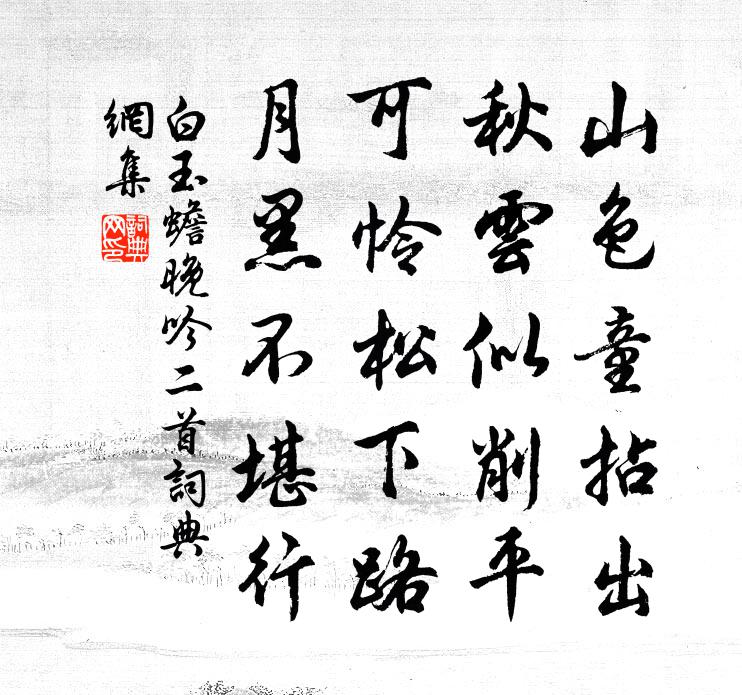 山色童拈出
秋雲似削平
可怜松下路
月黑不堪行
白玉蟾晚吟二首詞典
網集
詞典
网印